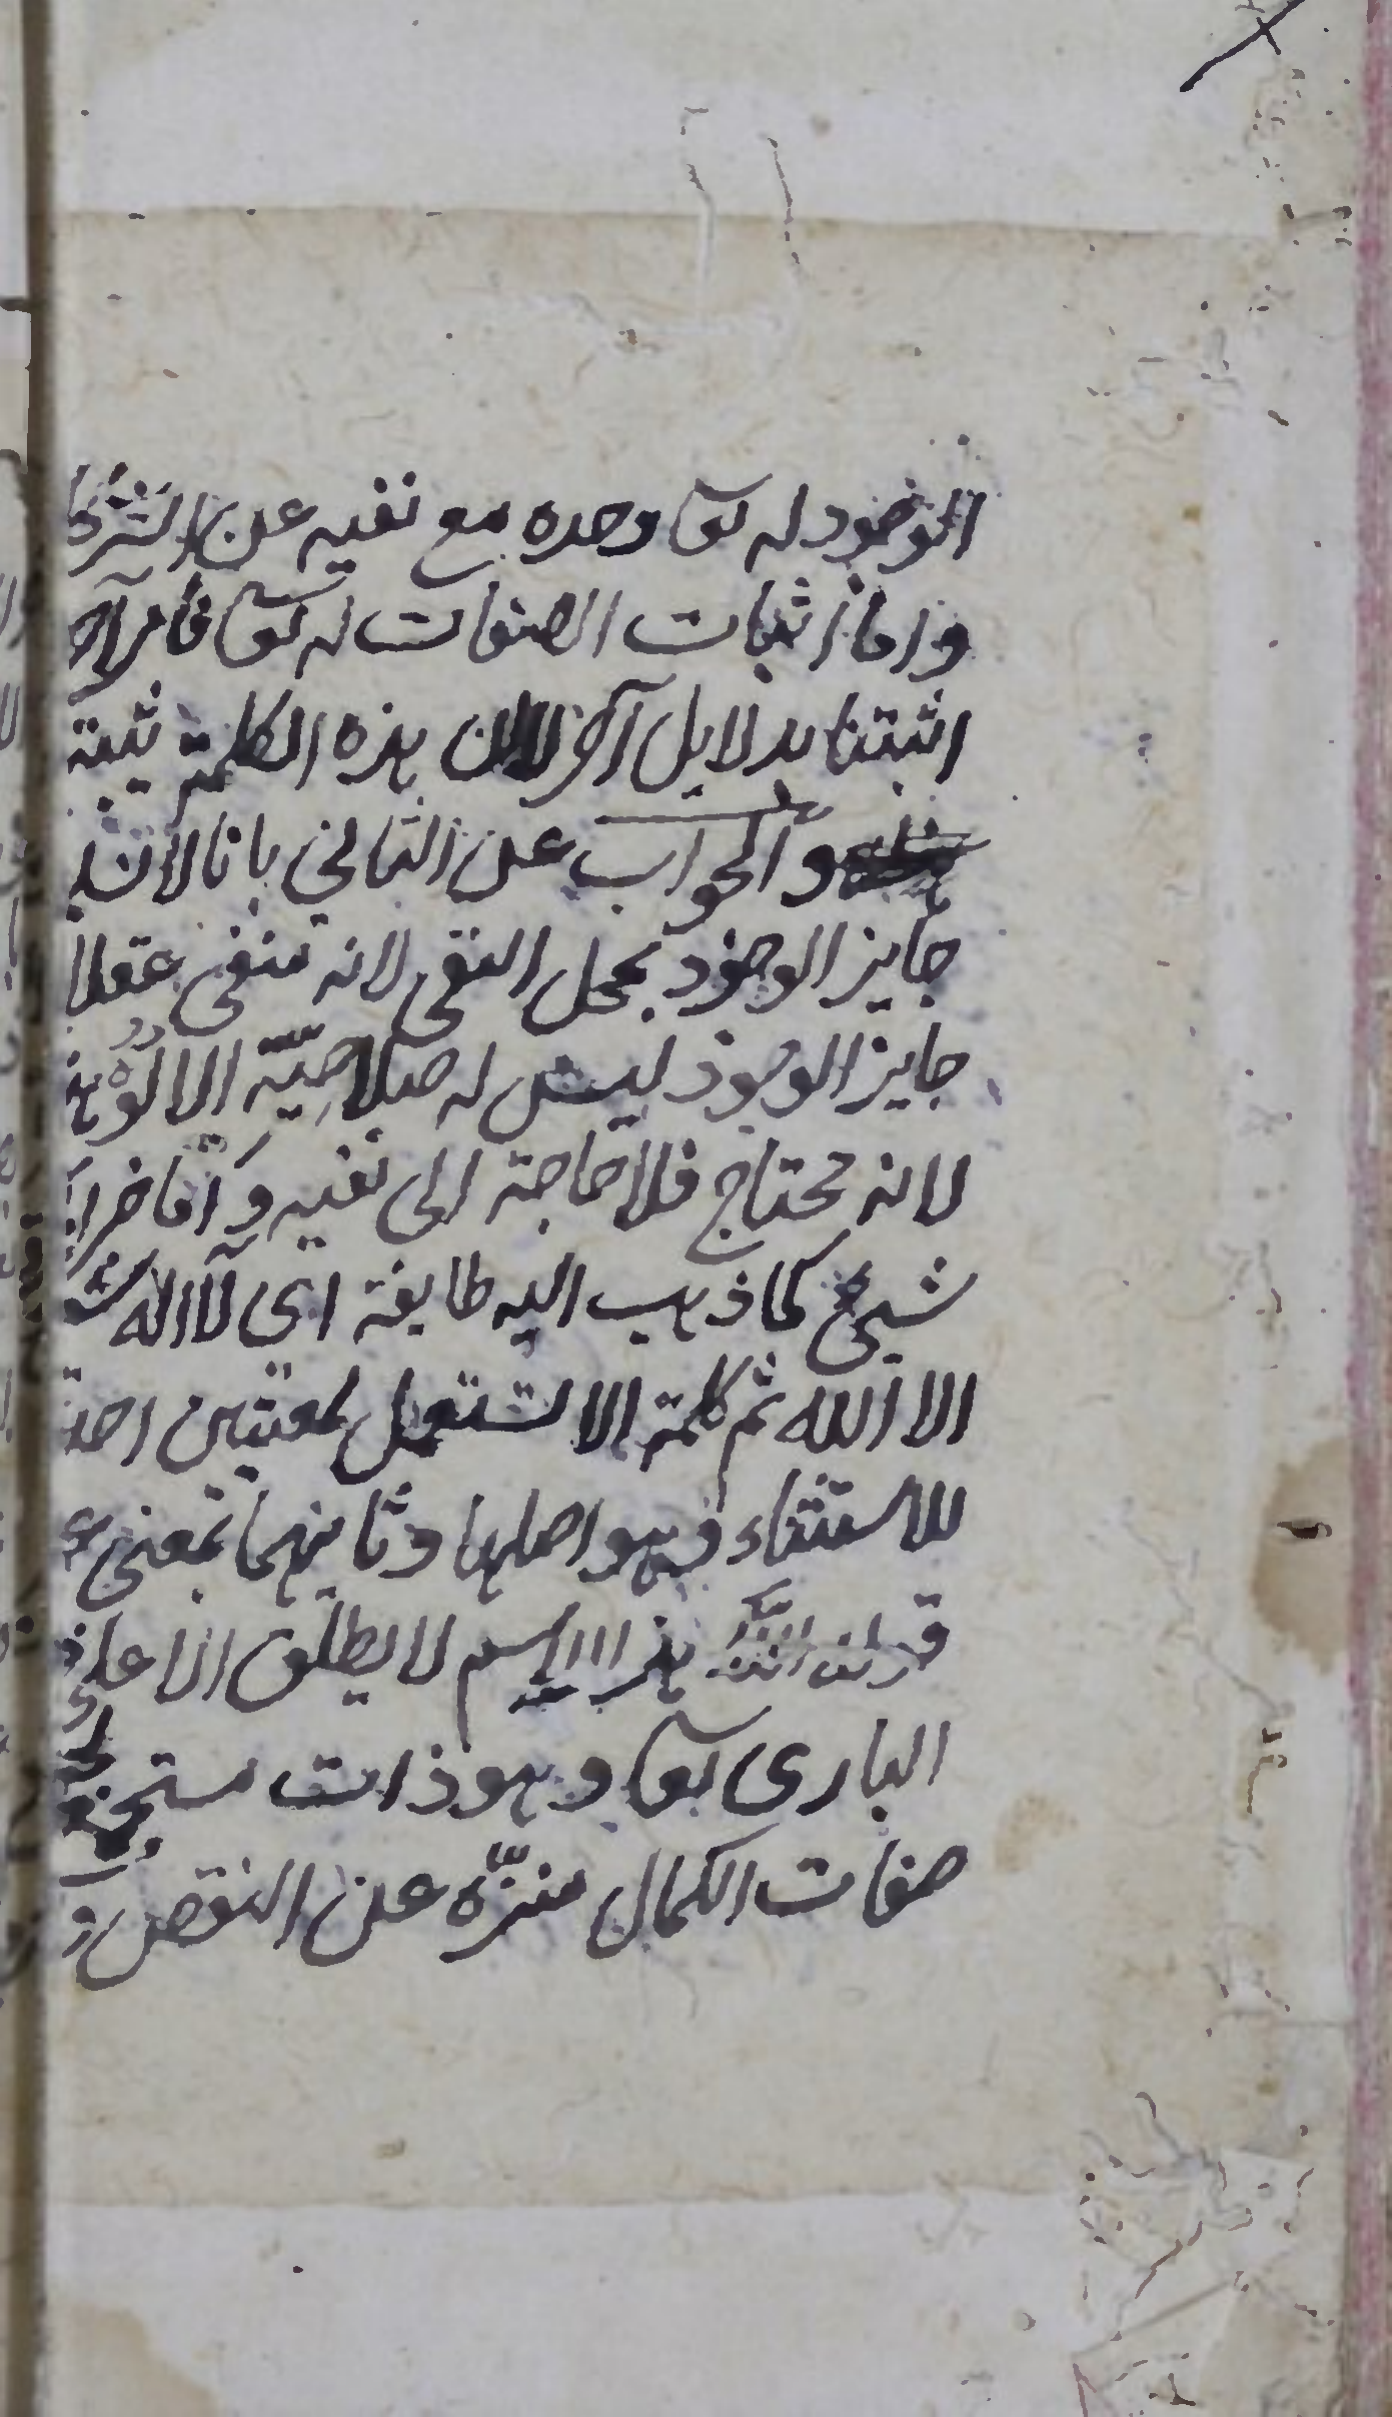 الوجود له تعا وحده مع نفيه عن الشركا
واما اثبات الصفات له تعا فامر آخر
اثبتنا بدلايل آخر لا لان هذه الكلمة ثبته
والجواب عن الثاني بانا لا نقد
جايز الوجود بمحل النفى لانه منفى عقلا
جايز الوجود ليس له صلاحيّة الالوُهية
لانه محتاج فلا حاجة الى نفيه واما خبر
شيئ كما ذهب اليه طايفة اى لا اله
الا الله ثم كلمة الا تستعمل لمعنيين احد
للاستثناء وهو اصلها وثانيهما بمعنى
قوله الله هذا الاسم لا يطلق الا على
البارى تعا وهو ذات مستجمع
صفات الكمال منزّه عن النقص و